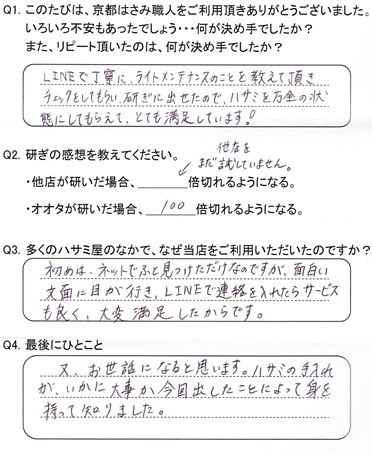 Q1. このたびは、京都はさみ職人をご利用頂きありがとうございました。
いろいろ不安もあったでしょう・・・何が決め手でしたか？
また、リピート頂いたのは、何が決め手でしたか？
LINEで丁寧に、ライトメンテナンスのことを教えて頂き
チェックをしてもらい、研ぎに出せたので、ハサミを万全の状
態にしてもらえて、とても満足しています！
Q2. 研ぎの感想を教えてください。
他店を
まだ試していません。
・他店が研いだ場合、______倍切れるようになる。
・オオタが研いだ場合、100倍切れるようになる。
Q3. 多くのハサミ屋のなかで、なぜ当店をご利用いただいたのですか？
初めは、ネットでふと見つけただけなのですが、面白い
文面に目が行き、LINEで連絡を入れたらサービス
も良く、大変満足したからです。
Q4. 最後にひとこと
又、お世話になると思います。ハサミの手入れ
が、いかに大事か、今回出したことによって身を
持って知りました。